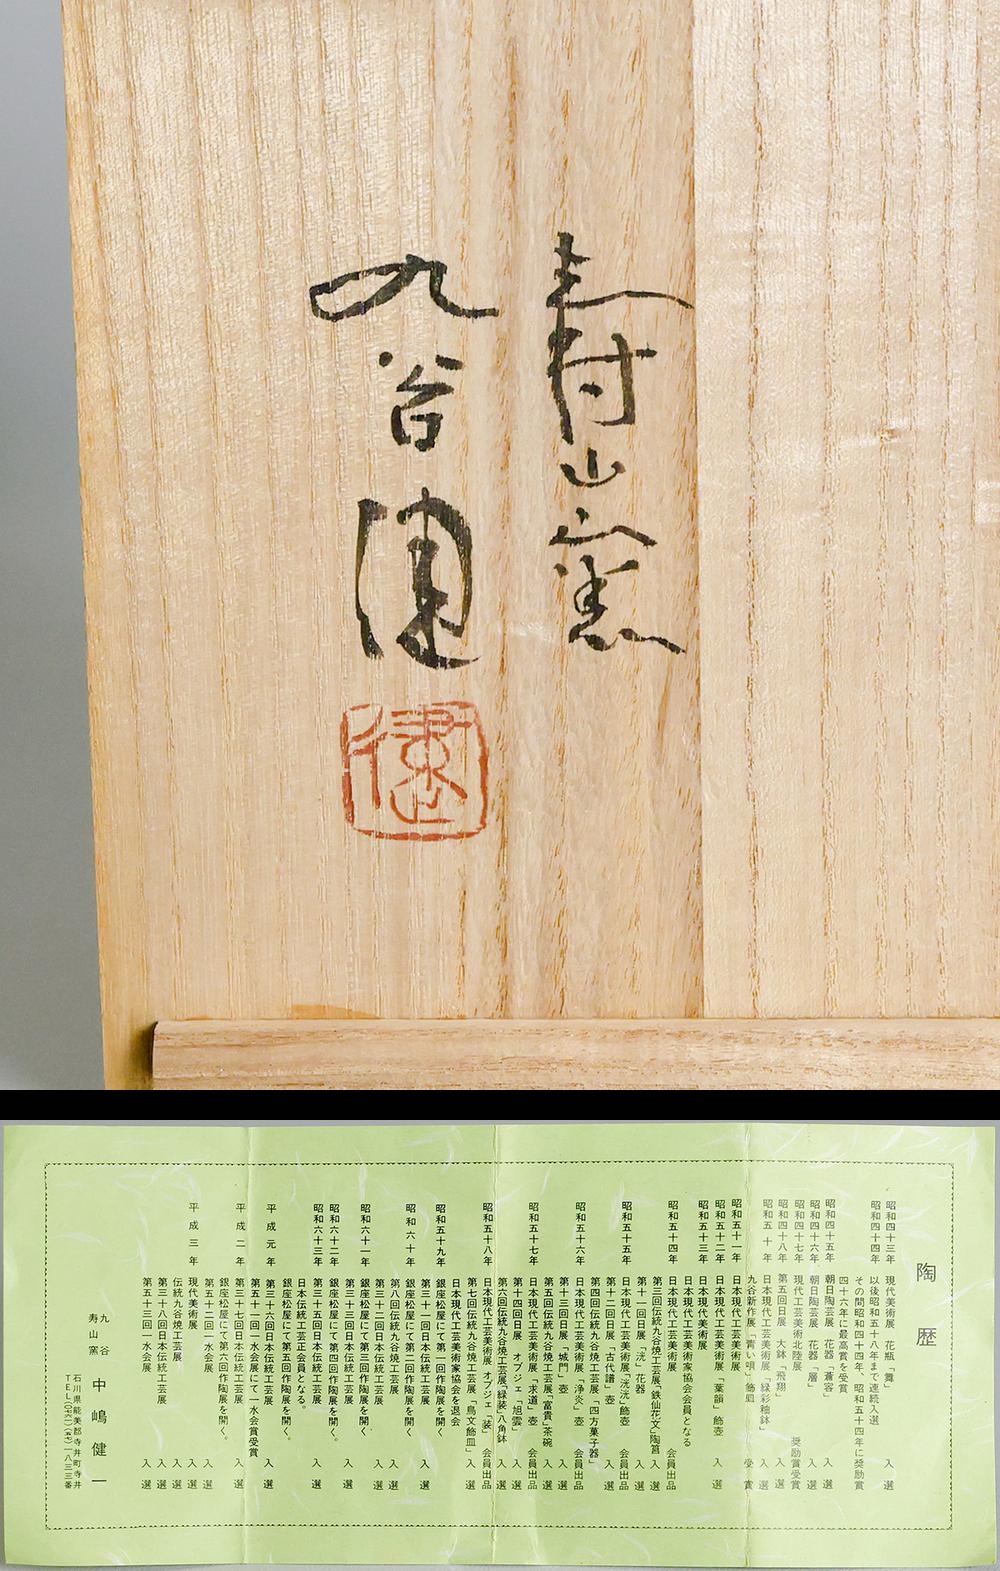 寿山窯
九谷 健
健
陶歴
昭和四十三年 現代美術展 花瓶「舞」 入選
昭和四十四年 以後昭和五十八年まで連続入選
その間昭和四十四年、昭和五十四年に奨励賞
四十六年に最高賞を受賞
昭和四十五年 朝日陶芸展 花器「蒼容」 入選
昭和四十六年 朝日陶芸展 花器「層」 入選
昭和四十七年 現代工芸美術北陸展 奨励賞受賞
昭和四十八年 第五回日展 大鉢「飛翔」 入選
昭和五十年 日本現代工芸美術展「緑彩釉鉢」 入選
九谷新作展「青い唄」飾皿 受賞
昭和五十一年 日本現代工芸美術展
昭和五十二年 日本現代工芸美術展「葉韻」飾壺 入選
昭和五十三年 日本現代美術展
日本現代工芸美術家協会会員となる
昭和五十四年 日本現代工芸美術展 会員出品
第三回伝統九谷焼工芸展「鉄仙花文」陶筥 入選
第十一回日展「洸」花器 入選
昭和五十五年 日本現代工芸美術展「洸洸」飾壺 会員出品
第十二回日展「古代譜」壺 入選
第四回伝統九谷焼工芸展「四方菓子器」 入選
昭和五十六年 日本現代工芸美術展「浄炎」壺 会員出品
第十三回日展「城門」壺 入選
第五回伝統九谷焼工芸展「富貴」茶碗 入選
昭和五十七年 日本現代工芸美術展「求道」壺 会員出品
第十四回日展 オブジェ「旭雲」 入選
第六回伝統九谷焼工芸展「緑装」八角鉢 入選
昭和五十八年 日本現代工芸美術展 オブジェ「装」 会員出品
第七回伝統九谷焼工芸展「鳥文飾皿」 入選
日本現代工芸美術家協会を退会
昭和五十九年 銀座松屋にて第一回作陶展を開く
第三十一回日本伝統工芸展 入選
昭和六十年 銀座松屋にて第二回作陶展を開く
第八回伝統九谷焼工芸展 入選
第三十二回日本伝統工芸展 入選
昭和六十一年 銀座松屋にて第三回作陶展を開く
第三十三回日本伝統工芸展 入選
昭和六十二年 銀座松屋にて第四回作陶展を開く。
昭和六十三年 第三十五回日本伝統工芸展 入選
日本伝統工芸正会員となる。
銀座松屋にて第五回作陶展を開く。
平成元年 第三十六回日本伝統工芸展 入選
第五十一回一水会展にて一水会賞受賞
平成二年 第三十七回日本伝統工芸展 入選
銀座松屋にて第六回作陶展を開く。
第五十二回一水会展 入選
平成三年 現代美術展 入選
伝統九谷焼工芸展 入選
第三十八回日本伝統工芸展 入選
第五十三回一水会展 入選
九谷
寿山窯 中嶋健一
石川県能美郡寺井町寺井